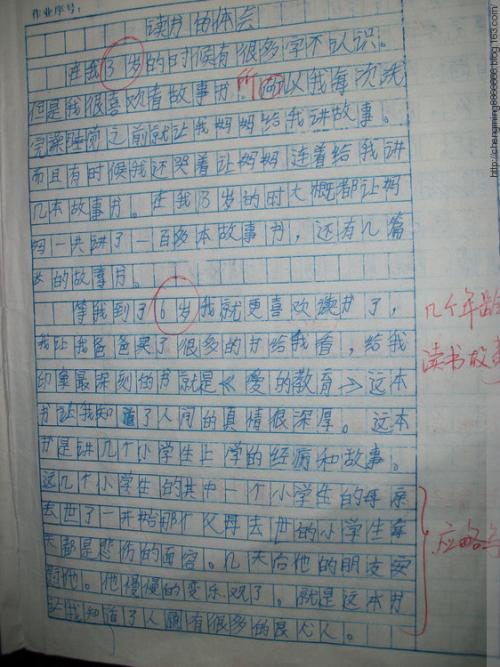 作业序号:
读书的体会
在我3岁的时候有很多字不认识。
但是我很喜欢看故事书,所以我每次洗
完澡睡前之前就让我妈妈给我讲故事。
而且有时候我还哭着让妈妈连着给我讲
几本故事书。在我3岁的时大概都让妈
妈一共讲了一百多本故事书,还有几篇
的故事书。
等我到了6岁我就更喜欢读书了,
我让我爸爸买了很多的书给我看,给我
印象最深刻的书就是《爱的教育》这本
书让我知道了人间的真情很深厚。这本
书是讲几个小学生上学的经历和故事。
这几个小学生的其中一个小学生的母亲
去世了一开始那个父母去世的小学生每
天都是悲伤的面容。几天后他的朋友安
慰他。他慢慢的变乐观了。就是这本书
让我知道了人间有很多的良人。
几个年龄
读书故事
应略写